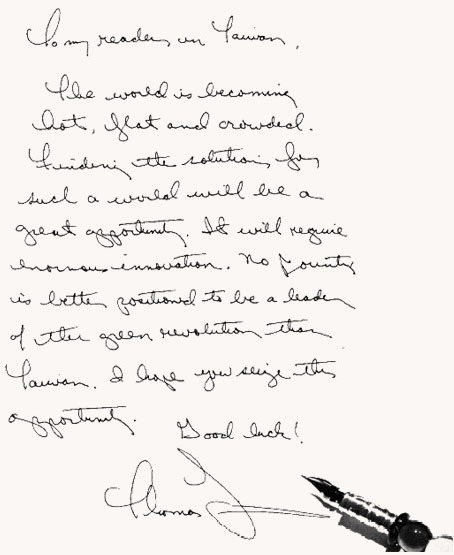 To my readers in Taiwan,
The world is becoming
hot, flat and crowded.
Finding the solutions for
such a world will be a
great opportunity. It will require
enormous innovation. No country
is better positioned to be a leader
of the green revolution than
Taiwan. I hope you seize this
opportunity.
Good luck!
Thomas